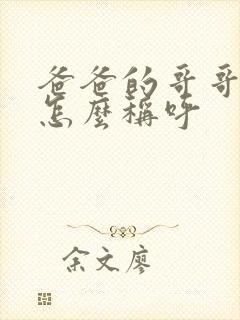 爸爸的哥哥
怎麼稱呼
余文廖